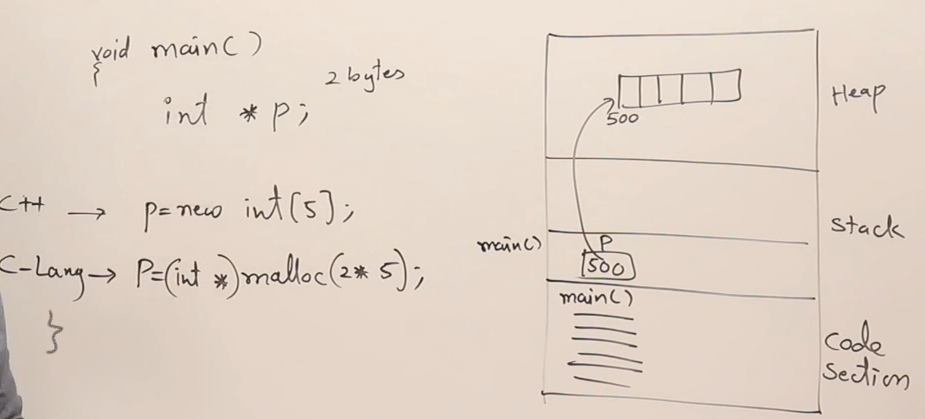 void main()
{
2 bytes
int * p;
C++ → p=new int[5];
C-Lang→ P=(int *)malloc(2* 5);
}
Heap
500
Stack
main()
P
500
main()
Code
Section